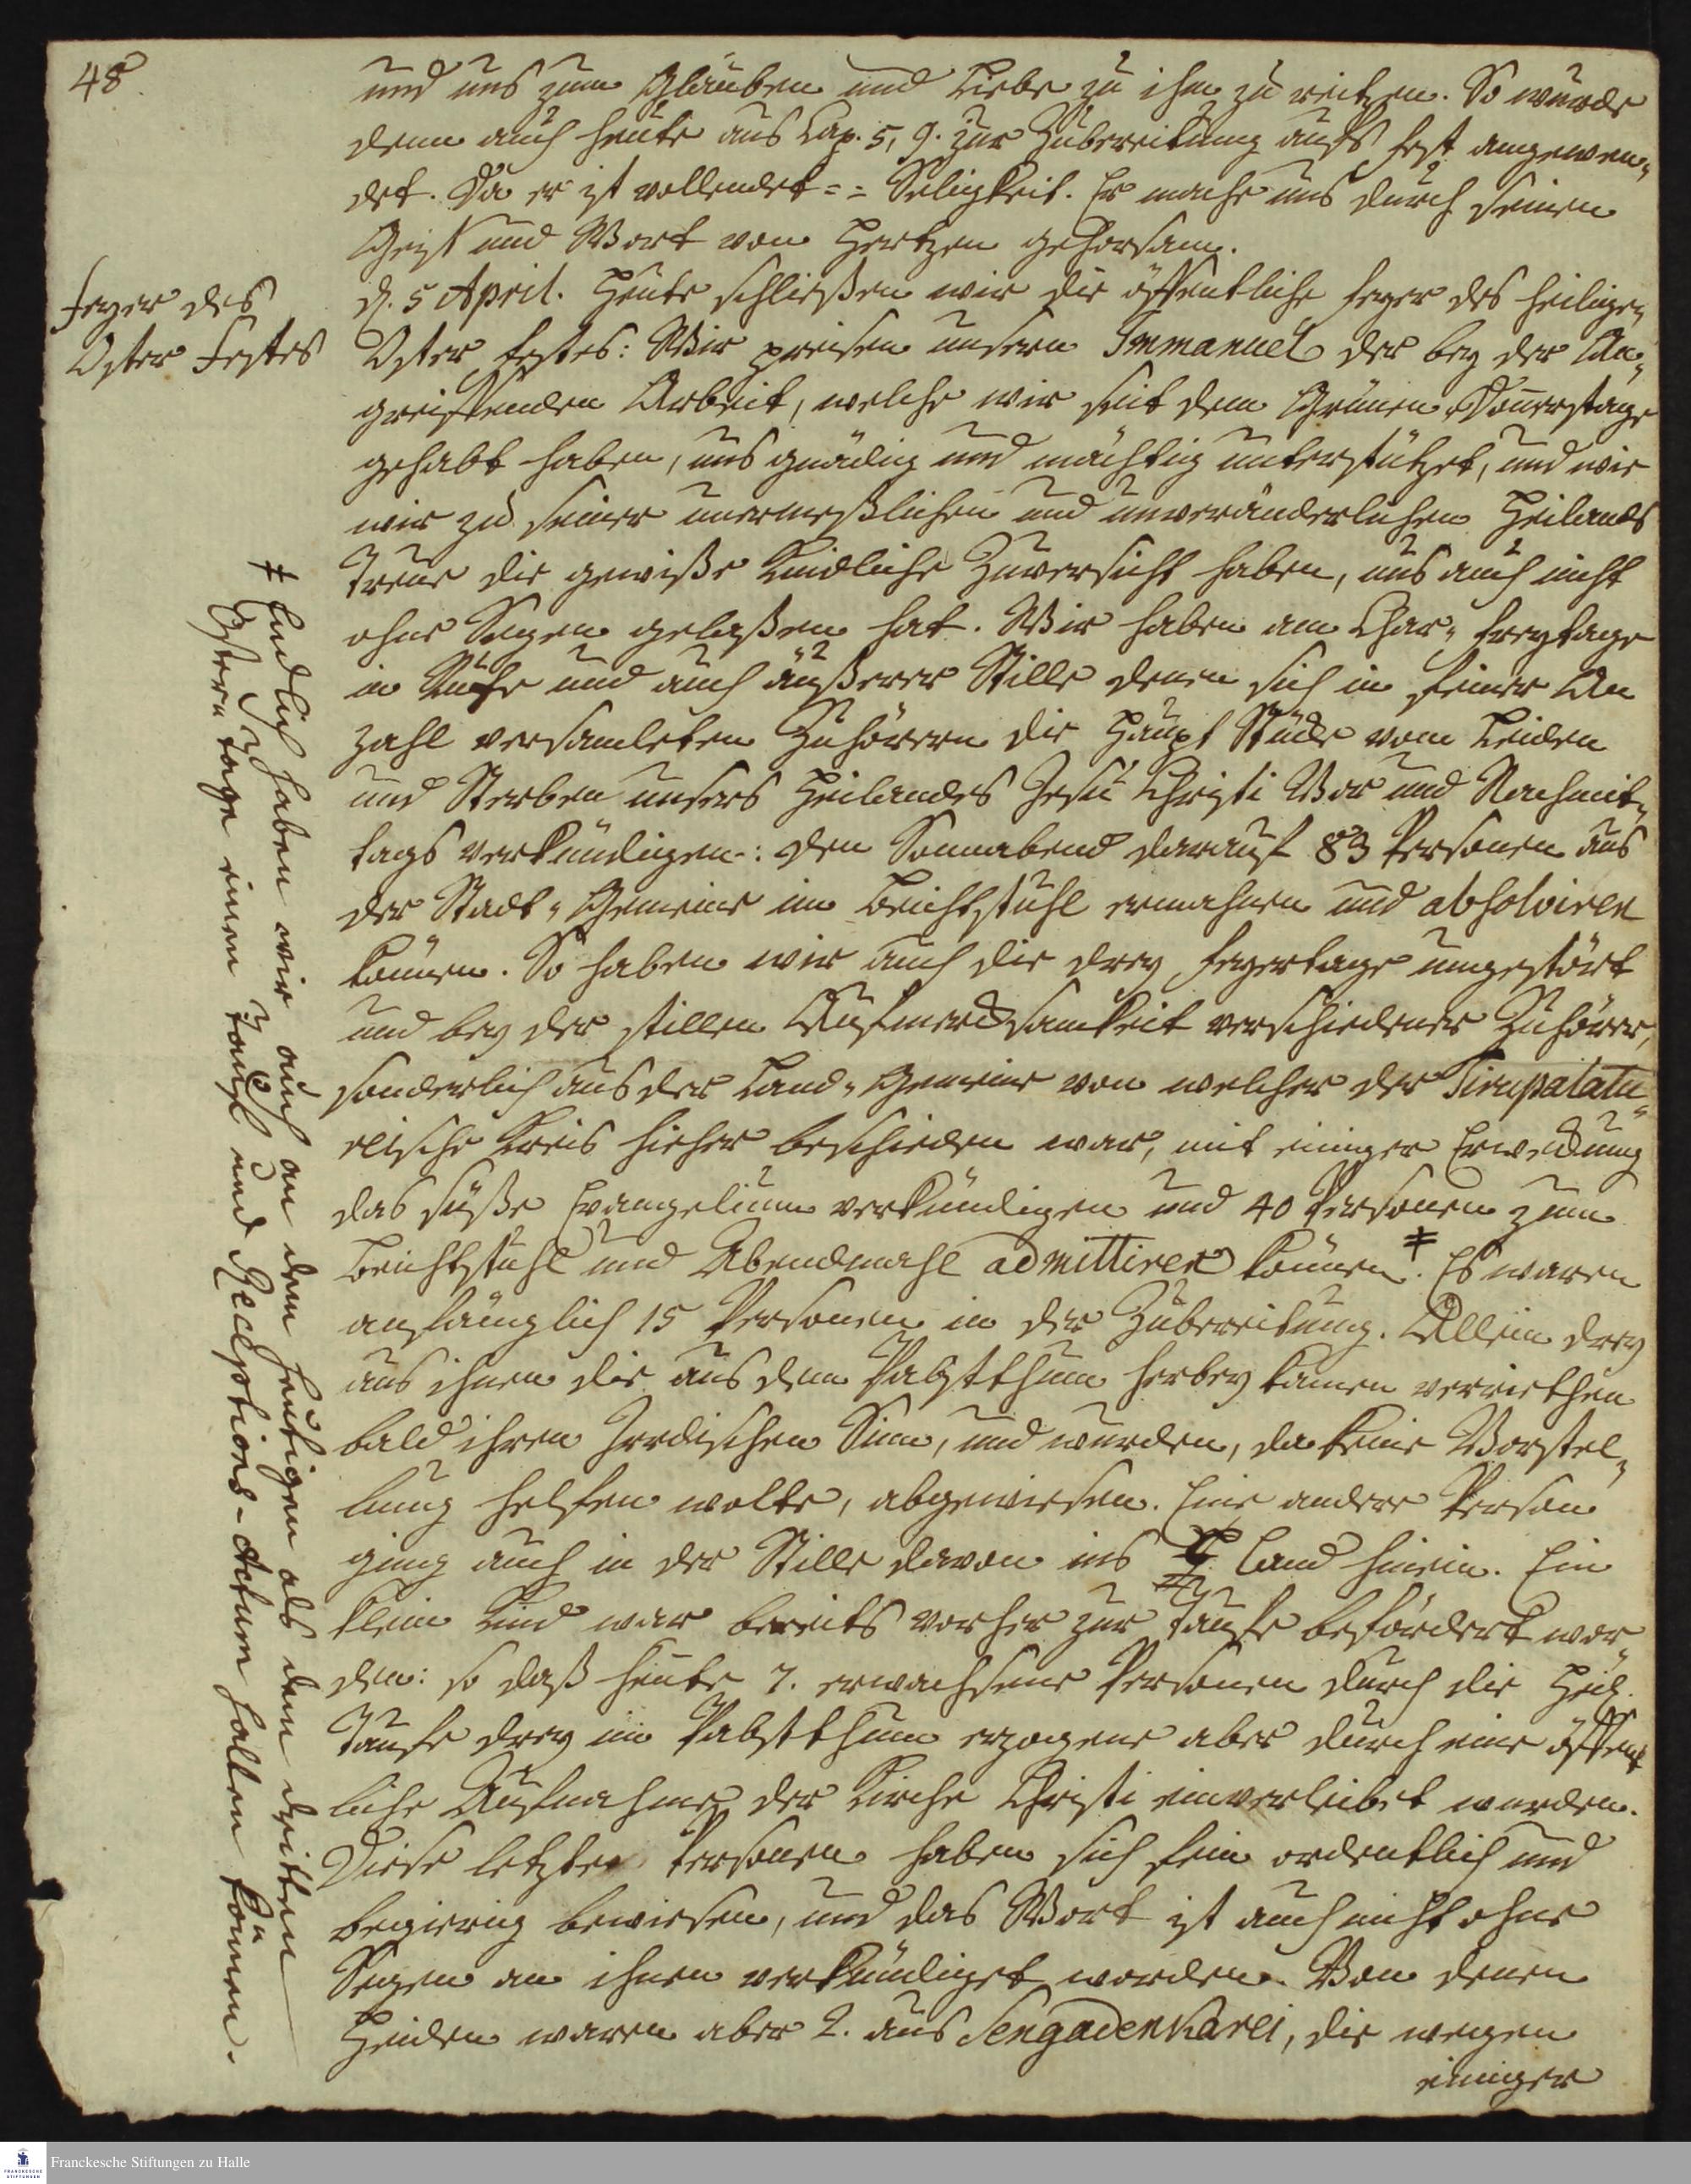 48
und uns zum Glauben und Liebe zu ihm zu reitzen. So wurde
denn auch heute aus Cap. 5, 9. zur Zubereitung aufs Fest angewen„
det. Da er ist vollendet = = Seligkeit. Er mache uns durch seinen
Geist und Wort von Hertzen gehorsam.
Feyer des
Oster Festes
d. 5 April. Heute schließen wir die öffentliche Feyer des heiligen
Oster Festes: Wir preisen unsern Immanuel der bey der An„
greiffenden Arbeit, welche wir seit dem Grünen Donnerstage
gehabt haben, uns gnädig und mächtig unterstützet, und wie
wir zu seiner unermeßlichen und unveränderlichen Heilands
Treue die gewiße kindliche Zuversicht haben, uns auch nicht
ohne Segen gelaßen hat. Wir haben am Char„ Freytage
in Ruhe und auch äußerer Stille denen sich in feiner An
zahl versamleten Zuhörern die Haupt Stücke vom Leiden
und Sterben unsers Heilandes Jesu Christi Vor und Nachmit„
tags verkündigen: den Sonnabend darauf 83 Personen aus
der Stadt„ Gemeine im Beichtstuhl ermahnen und absolviren
können. So haben wir auch die drey Feyertage ungestört
und bey der stillen Aufmercksamkeit verschiedener Zuhörer,
sonderlich aus der Land„ Gemeine von welcher der Tirupalatu„
rische Kreis hieher beschieden war, mit einiger Erweckung
das süße Evangelium verkündigen und 40 Personen zum
Beichtstuhl und Abendmahl admittiren können ǂ. Es waren
anfänglich 15 Personen in der Zubereitung. Allein drey
aus ihnen die aus dem Pabstthum herbey kamen verriethen
bald ihren Irrdischen Sinn, und wurden, da keine Vorstel„
lung helfen wolte, abgewiesen. Eine andere Person
ging auch in der Stille davon ins Land hinein. Ein
klein Kind war bereits vorher zur Taufe befördert wor„
den: so daß heute 7. erwachsene Personen durch die Heil.
Taufe drey im Pabstthum erzogene aber durch eine öffent
liche Aufnahme der Kirche Christi einverleibet wurden.
Diese letzten Personen haben sich fein ordentlich und
begierig bewiesen, und das Wort ist auch nicht ohne
Segen an ihnen verkündiget worden. Von denen
Heiden waren aber 2. aus Sengadenkarei, die wegen
einiger
ǂ Endlich haben wir auch an dem heutigen als dem dritten
Oster„ tage einen Tauf und Receptions-Actum halten können.
Franckesche Stiftungen zu Halle